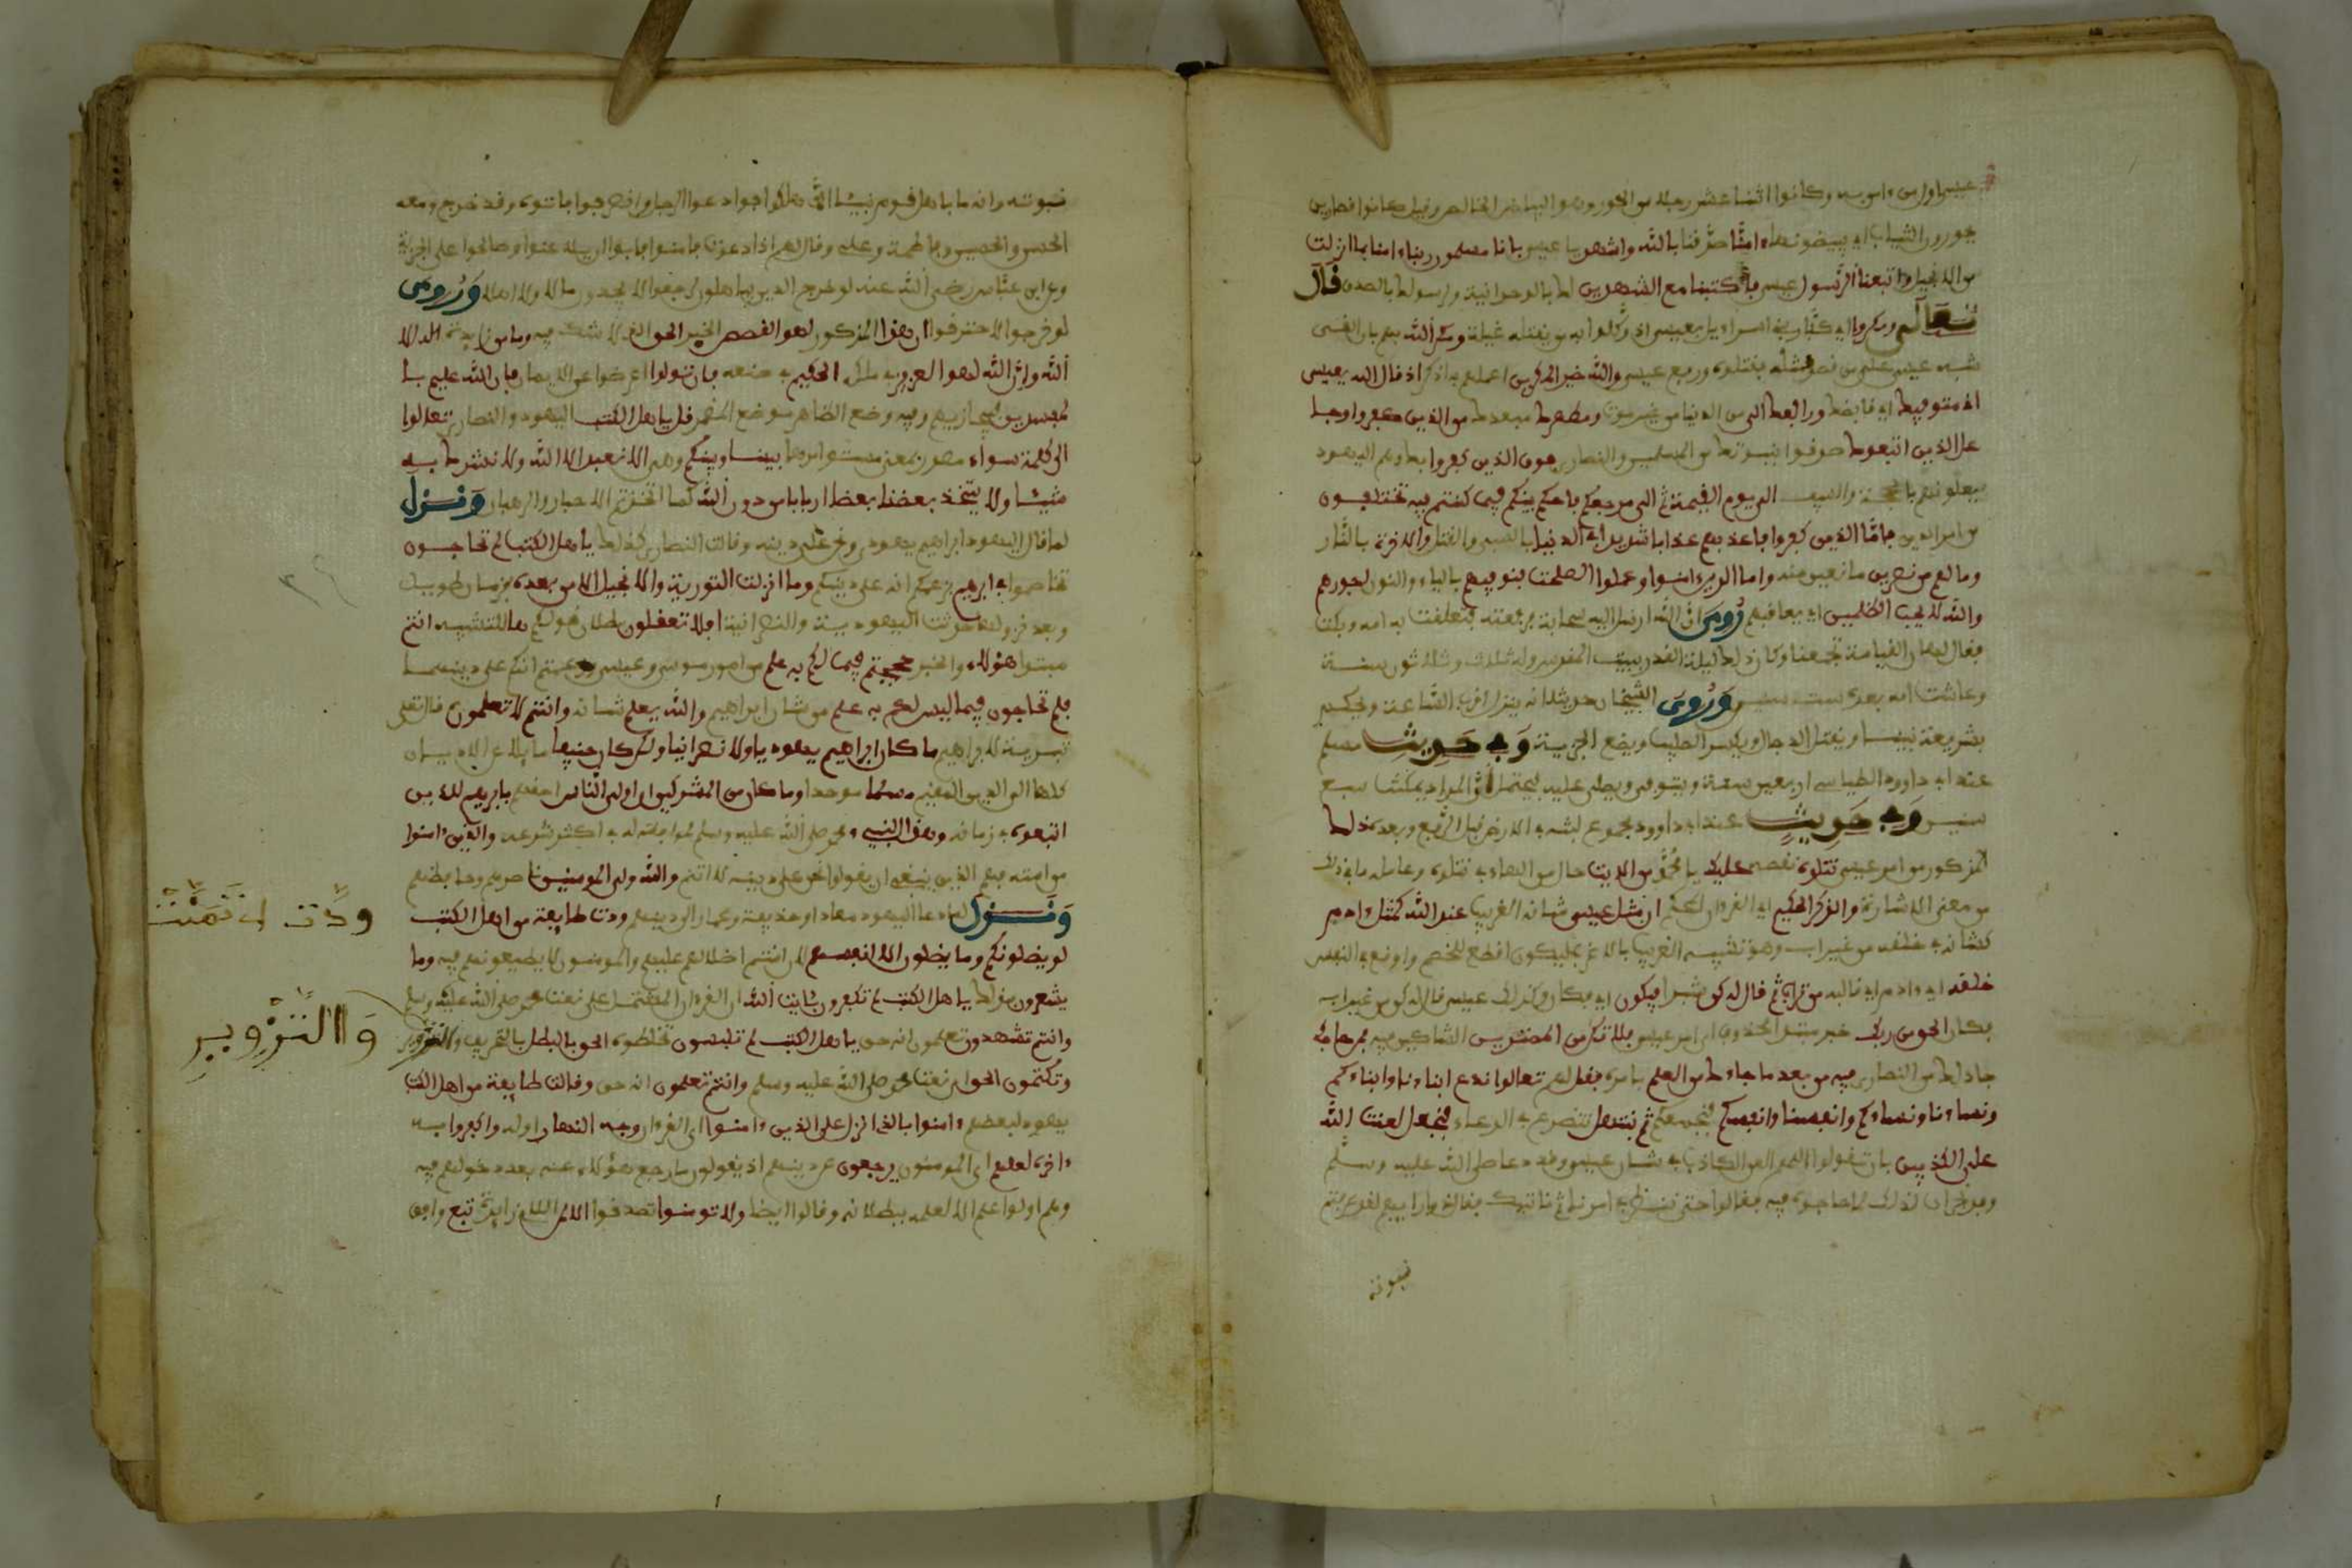 عيسى اول من ءامن به وكانوا اثنا عشر رجلا من الحور وهو البياض الخالص وقيل كانوا قصارين
يحورون الثياب اي يبيضونها ءامنا صدقنا بالله واشهد يا عيسى بانا مسلمون ربنا ءامنا بما انزلت
من الانجيل واتبعنا الرسول عيسى فاكتبنا مع الشهدين لك بالوحدانية ولرسولك بالصدق قال
تعالى ومكروا اي كفار بني اسراءيل بعيسى اذ وكلوا به من يقتله غيلة ومكر الله بهم بان القى
شبه عيسى على من قصد قتله فقتلوه ورفع عيسى والله خير المكرين اعلمهم به اذكر اذ قال الله يعيسى
اني متوفيك اي قابضك ورافعك الي من الدنيا من غير موت ومطهرك مبعدك من الذين كفروا وجا
عل الذين اتبعوك صدقوا بنبوتك من المسلمين والنصارى فوق الذين كفروا بك وهم اليهود
يعلونهم بالحجة والسيف الى يوم القيمة ثم الي مرجعكم فاحكم بينكم فيما كنتم فيه تختلفون
من امر الدين فاما الذين كفروا فاعذبهم عذابا شديدا في الدنيا بالسبي والقتل والاخرة بالنار
وما لهم من نصرين مانعين منه واما الذين ءامنوا وعملوا الصلحت فنوفيهم بالياء والنون اجورهم
والله لا يحب الظلمين اي يعاقبهم روي ان الله ارسل اليه سحابة فرفعته فتعلقت به امه وبكت
فقال لها ان القيامة تجمعنا وكان ذلك ليلة القدر ببيت المقدس وله ثلاث وثلاثون سنة
وعاشت امه بعده ست سنين وروى الشيخان حديثا انه ينزل قرب الساعة ويحكم
بشريعة نبينا ويقتل الدجال ويكسر الصليب ويضع الجزية وفي حديث مسلم
عند ابي داوود الطيالسي اربعين سنة ويتوفى ويصلى عليه فيحتمل ان المراد يمكث سبع
سنين وفي حديث عند ابي داوود مجموع لبثه في الارض قبل الرفع وبعده ذلك
المذكور من امر عيسى نتلوه نقصه عليك يا محمد من الايت حال من الهاء في نتلوه وعامله ما في ذلك
من معنى الاشارة والذكر الحكيم اي القرءان المحكم ان مثل عيسى شانه الغريب عند الله كمثل ءادم
كشانه في خلقه من غير اب وهو تشبيه الغريب بالاغرب ليكون اقطع للخصم واوقع في النفس
خلقه اي ءادم اي قالبه من تراب ثم قال له كن بشرا فيكون اي فكان وكذلك عيسى قال له كن من غير اب
فكان الحق من ربك خبر مبتدا محذوف اي امر عيسى فلا تكن من الممترين الشاكين فيه فمن حاجك
جادلك من النصارى فيه من بعد ما جاءك من العلم بامره فقل لهم تعالوا ندع ابناءنا وابناءكم
ونساءنا ونساءكم وانفسنا وانفسكم فنجمعهم ثم نبتهل نتضرع في الدعاء فنجعل لعنت الله
على الكذبين بان نقولوا اللهم العن الكاذب في شان عيسى وقد دعا صلى الله عليه وسلم
وفد نجران لذلك لما حاجوه فيه فقالوا حتى ننظر في امرنا ثم ناتيك فقال ذو رايهم لقد عرفتم
نبوته
نبوته وانه ما باهل قوم نبيئا الا هلكوا فوادعوا الرجل وانصرفوا فاتوه وقد خرج ومعه
الحسن والحسين وفاطمة وعلي وقال لهم اذا دعوت فامنوا فابوا ان يلاعنوا وصالحوا على الجزية
وعن ابن عباس رضي الله عنه لو خرج الذين يباهلون لرجعوا لا يجدون مالا ولا اهلا وروي
لو خرجوا لاحترقوا ان هذا المذكور لهو القصص الخبر الحق الذي لا شك فيه وما من زايدة اله الا
الله وان الله لهو العزيز في ملكه الحكيم في صنعه فان تولوا اعرضوا عن الايمان فان الله عليم با
لمفسدين فيجازيهم وفيه وضع الظاهر موضع المضمر قل ياهل الكتب اليهود والنصارى تعالوا
الى كلمة سواء مصدر بمعنى مستو امرها بيننا وبينكم وهي الا نعبد الا الله ولا نشرك به
شيئا ولا يتخذ بعضنا بعضا اربابا من دون الله كما اتخذتم الاحبار والرهبان ونزل
لما قال اليهود ابراهيم يهودي ونحن على دينه وقالت النصارى كذلك ياهل الكتب لم تحاجون
تخاصموا في ابرهيم بزعمكم انه على دينكم وما انزلت التورية والانجيل الا من بعده بزمان طويل
وبعد نزولهما حدثت اليهودية والنصرانية افلا تعقلون بطلان قولكم ها للتنبيه انتم
مبتدا هؤلاء والخبر حججتم فيما لكم به علم من امر موسى وعيسى وزعمتم انكم على دينهما
فلم تحاجون فيما ليس لكم به علم من شان ابراهيم والله يعلم شانه وانتم لا تعلمون قال تعلى
تبرية لابراهيم ما كان ابراهيم يهوديا ولا نصرانيا ولكن كان حنيفا مايلا عن الاديان
كلها الى الدين القيم مسلما موحدا وما كان من المشركين ان اولى الناس احقهم بابرهيم للذين
اتبعوه في زمانه وهذا النبيء محمد صلى الله عليه وسلم لموافقته له في اكثر شرعه والذين ءامنوا
من امته فهم الذين ينبغي ان يقولوا نحن على دينه لا انتم والله ولي المومنين ناصرهم وحافظهم
ونزل لما دعا اليهود معاذا وحذيفة وعمارا الى دينهم ودت طايفة من اهل الكتب
لو يضلونكم وما يضلون الا انفسهم لان اثم اضلالهم عليهم والمومنون لا يطيعونهم فيه وما
يشعرون بذلك ياهل الكتب لم تكفرون بئايت الله اي القرءان المشتمل على نعت محمد صلى الله عليه وسلم
وانتم تشهدون تعلمون انه حق ياهل الكتب لم تلبسون تخلطون الحق بالبطل بالتحريف والتزوير
وتكتمون الحق اي نعت محمد صلى الله عليه وسلم وانتم تعلمون انه حق وقالت طايفة من اهل الكتب
يهود لبعضهم ءامنوا بالذي انزل على الذين ءامنوا اي القرءان وجه النهار اوله واكفروا به
ءاخره لعلهم اي المومنون يرجعون عن دينهم اذ يقولون ما رجع هؤلاء عنه بعد دخولهم فيه
وهم اولوا علم الا لعلمهم بطلانه وقالوا ايضا ولا تومنوا تصدقوا الا لمن اللام زايدة تبع وافق
ودت اي تمنت
والتزوير